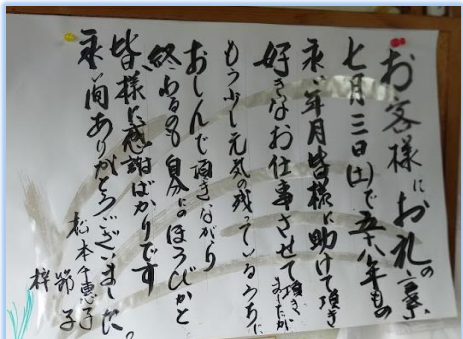 お客様にお礼の言葉
七月三日(土)で五十八年もの
永い年月皆様に助けて頂き
好きなお仕事させて頂きましたが
もう少し元気の残っているうちに
おしんで頂きながら
終わるのも自分にのほろびかと
皆様に感謝ばかりです
永い間ありがとうございました。
松本千恵子
節子
梓